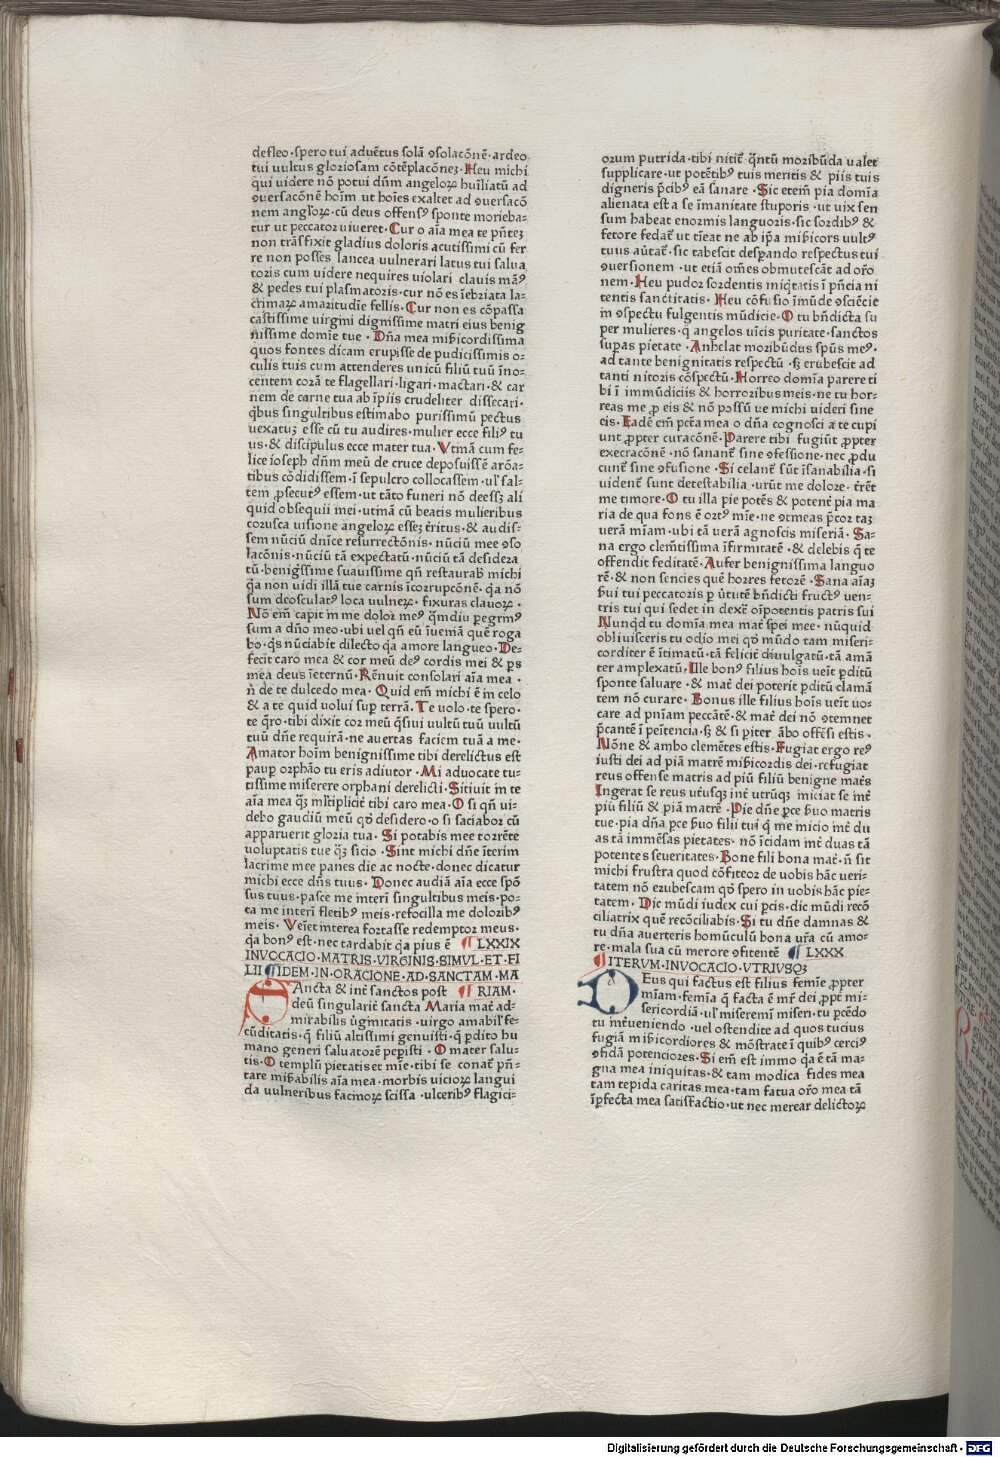 defleo·spero tui aduētus solā ꝯsolacōnē·ardeo
tui uultus gloriosam cōtēplacōneꝫ·Heu michi
qui uidere nō potui dñm angeloꝝ huīliatū ad
ꝯuersacōnē hoīm ut hoīes exaltet ad ꝯuersacō
nem angloꝝ·cū deus offensꝰ sponte morieba-
tur ut peccator uiueret·Cur o aīa mea te p̄nteꝫ
non trāsfixit gladius doloris acutissimi cū fer
re non posses lancea uulnerari latus tui salua
toris cum uidere nequires uiolari clauis māꝰ
& pedes tui plasmatoris·cur nō es īebriata la-
crimaꝝ amaritudīe fellis·Cur non es cōpassa
castissime uirgini dignissime matri eius benig
nissime domīe tue·Dña mea mīßicordissima
quos fontes dicam erupisse de pudicissimis o-
culis tuis cum attenderes unicū filiū tuū īno-
centem corā te flagellari·ligari·mactari·& car
nem de carne tua ab īpiis crudeliter dissecari·
q̄bus singultibus estimabo purissimū pectus
uexatuꝫ esse cū tu audires·mulier ecce filiꝰ tu
us·& discipulus ecce mater tua·Vtinā cum fe-
lice ioseph dñm meū de cruce deposuissē aröa-
tibus cōdidissem·ī sepulcro collocassem·ul' sal-
tem ꝓsecutꝰ essem·ut tāto funeri nō deesseꝫ ali
quid obsequii mei·utinā cū beatis mulieribus
corusca uisione angeloꝝ esseꝫ t̄ritus·& audis-
sem nūciū dnīce resurrectōnis·nūciū mee ꝯso
lacōnis·nūciū tā expectatū·nūciū tā desidera
tū·benig̃ssime suauissime qñ restaurab̄ michi
q̄a non uidi illā tue carnis īcorrupcōnē·q̄a nō
sum deosculatꝰ loca uulneꝝ·fixuras clauoꝝ·
Nō em̄ capit in me dolor meꝰ q̄mdiu ꝑegrinꝰ
sum a dño meo·ubi uel qñ eū īueniā quē roga
bo·q̄s nūciabit dilecto q̄a amore langueo·De-
fecit caro mea & cor meū deꝰ cordis mei & ꝑs
mea deus īeternū·Rēnuit consolari aīa mea·
n̄ de te dulcedo mea·Quid em̄ michi ē in celo
& a te quid uolui suꝑ terrā·Te uolo·te spero·
te q̄ro·tibi dixit cor meū q̄siui uultū tuū uultū
tuū dñe requirā·ne auertas faciem tuā a me·
Amator hoīm benignissime tibi derelictus est
pauꝑ orphāo tu eris adiutor·Mi aduocate tu-
tissime miserere orphani derelicti·Sitiuit in te
aīa mea q̄ꝫ ml'tiplicit̄ tibi caro mea·O si qñ ui-
debo gaudiū meū qd̄ desidero·o si saciabor cū
apparuerit gloria tua·Si potabis mee torrēte
uoluptatis tue q̄ꝫ sicio·Sint michi dñe īterim
lacrime mee panes die ac nocte·donec dicatur
michi ecce dñs tuus·Donec audiā aīa ecce spō
sus tuus·pasce me interī singultibus meis·po-
ta me interī fletibꝰ meis·refocilla me doloribꝰ
meis·Veīet interea fortasse redemptor meus·
q̄a bonꝰ est·nec tardabit q̄a pius ē ¶ LXXIX
INVOCACIO·MATRIS·VIRGINIS·SIMVL·ET·FI
LII ¶IDEM·IN·ORACIONE·AD·SANCTAM·MA
SAncta & int̄ sanctos post ¶ RIAM·
deū singularit̄ sancta Maria mat̄ ad-
mirabilis ūginitatis·uirgo amabil' fe-
cūditatis·q̄ filiū altissimi genuisti·q̄ ꝑdito hu
mano generi saluatorē peperisti·O mater salu-
tis·O templū pietatis et mīe·tibi se conat̄ pñ-
tare mīßabilis aīa mea·morbis uicioꝝ langui
da uulneribus facinoꝝ scissa·ulceribꝰ flagici-
orum putrida·tibi nitit̄ q̄ntū moribūda ualet
supplicare·ut potētibꝰ tuis meritis & piis tuis
digneris p̄cibꝰ eā sanare·Sic etem̄ pia domīa
alienata est a se īmanitate stuporis·ut uix sen
sum habeat enormis languoris·sic sordibꝰ &
fetore fedat̄ ut tīeat ne ab ip̄a mīßicors uultꝰ
tuus au̇tat̄·sic tabescit desꝑando respectus tui
ꝯuersionem·ut etiā om̄es obmutescāt ad or̄o
nem·Heu pudor sordentis iniq̄tatis ī p̄ncia ni
tentis sanctitatis·Heu cōfusio īmūde ꝯsciēcie
in ꝯspectu fulgentis mūdicie·O tu bn̄dicta su
per mulieres·q̄ angelos uīcis puritate·sanctos
suꝑas pietate·Anhelat moribūdus spūs meꝰ·
ad tante benignitatis respectū·sꝫ erubescit ad
tanti nitoris cōspectū·Horreo domīa parere ti
bi ī immūdiciis & horroribus meis·ne tu hor-
reas me ꝓ eis & nō possū ue michi uideri sine
eis·Eadē em̄ pctā mea o dña cognosci a te cupi
unt ꝓpter curacōnē·Parere tibi fugiūt ꝓpter
execracōnē·nō sanant̄ sine ꝯfessione·nec ꝓdu
cunt̄ sine ꝯfusione·Si celant̄ sūt īsanabilia·si
uident̄ sunt detestabilia·urūt me dolore·t̄rēt
me timore·O tu illa pie potēs & potent̄ pia ma
ria de qua fons ē ortꝰ mīe·ne ꝯtineas p̄cor taꝫ
uerā mīam·ubi tā uerā agnoscis miseriā·Sa-
na ergo clemētissima īfirmitatē·& delebis q̄ te
offendit feditatē·Aufer benignissima languo
rē·& non sencies quē horres fetorē·Sana aīaꝫ
ßui tui peccatoris ꝑ u̇tutē bn̄dicti fructꝰ uen-
tris tui qui sedet in dext̄ oīpotentis patris sui
Nunq̄d tu domīa mea mat̄ spei mee·nūquid
obliuisceris tu odio mei qd̄ mūdo tam miseri-
corditer ē ītimatū·tā felicit̄ diuulgatū·tā amā
ter amplexatū·Ille bonꝰ filius hoīs ueīt ꝑditū
sponte saluare·& mat̄ dei poterit ꝑditū clamā
tem nō curare·Bonus ille filius hoīs ueīt uo-
care ad pn̄iam peccātē·& mat̄ dei nō ꝯtemnet
p̄cantē ī peītencia·sꝫ & si piter ābo offēsi estis·
Nōne & ambo clemētes estis·Fugiat ergo reꝰ
iusti dei ad piā matrē mīßicordis dei·refugiat
reus offense matris ad piū filiū benigne mat̄s
Ingerat se reus ut̄usqꝫ int̄ utrūqꝫ iniciat se int̄
piū filiū & piā matrē·Pie dñe ꝑce ßuo matris
tue·pia dña ꝑce ßuo filii tui q̄ me inicio int̄ du
as tā immēsas pietates·nō īcidam int̄ duas tā
potentes seueritates·Bone fili bona mat̄·n̄ sit
michi frustra quod cōfiteor de uobis hāc ueri-
tatem nō erubescam qd̄ spero in uobis hāc pie-
tatem·Dic mūdi iudex cui ꝑcis·dic mūdi recō
ciliatrix quē recōciliabis·Si tu dñe damnas &
tu dña auerteris homūculū bona ur̄a cū amo-
re·mala sua cū merore ꝯfitentē ¶ LXXX
¶ITERVM·INVOCACIO·VTRIVSQꝫ
DEus qui factus est filius femīe ꝓpter
mīam·femīa q̄ facta ē mr̄ dei ꝓpt̄ mi-
sericordiā·ul' miseremī miseri·tu ꝑcēdo
tu int̄ueniendo·uel ostendite ad quos tucius
fugiā mīßicordiores & mōstrate ī quibꝰ cerciꝰ
ꝯfidā potenciores·Si em̄ est immo q̄a ē tā ma-
gna mea iniquitas·& tam modica fides mea
tam tepida caritas mea·tam fatua or̄o mea tā
īꝑfecta mea satisfactio·ut nec merear delictoꝝ
Digitalisierung gefördert durch die Deutsche Forschungsgemeinschaft - DFG